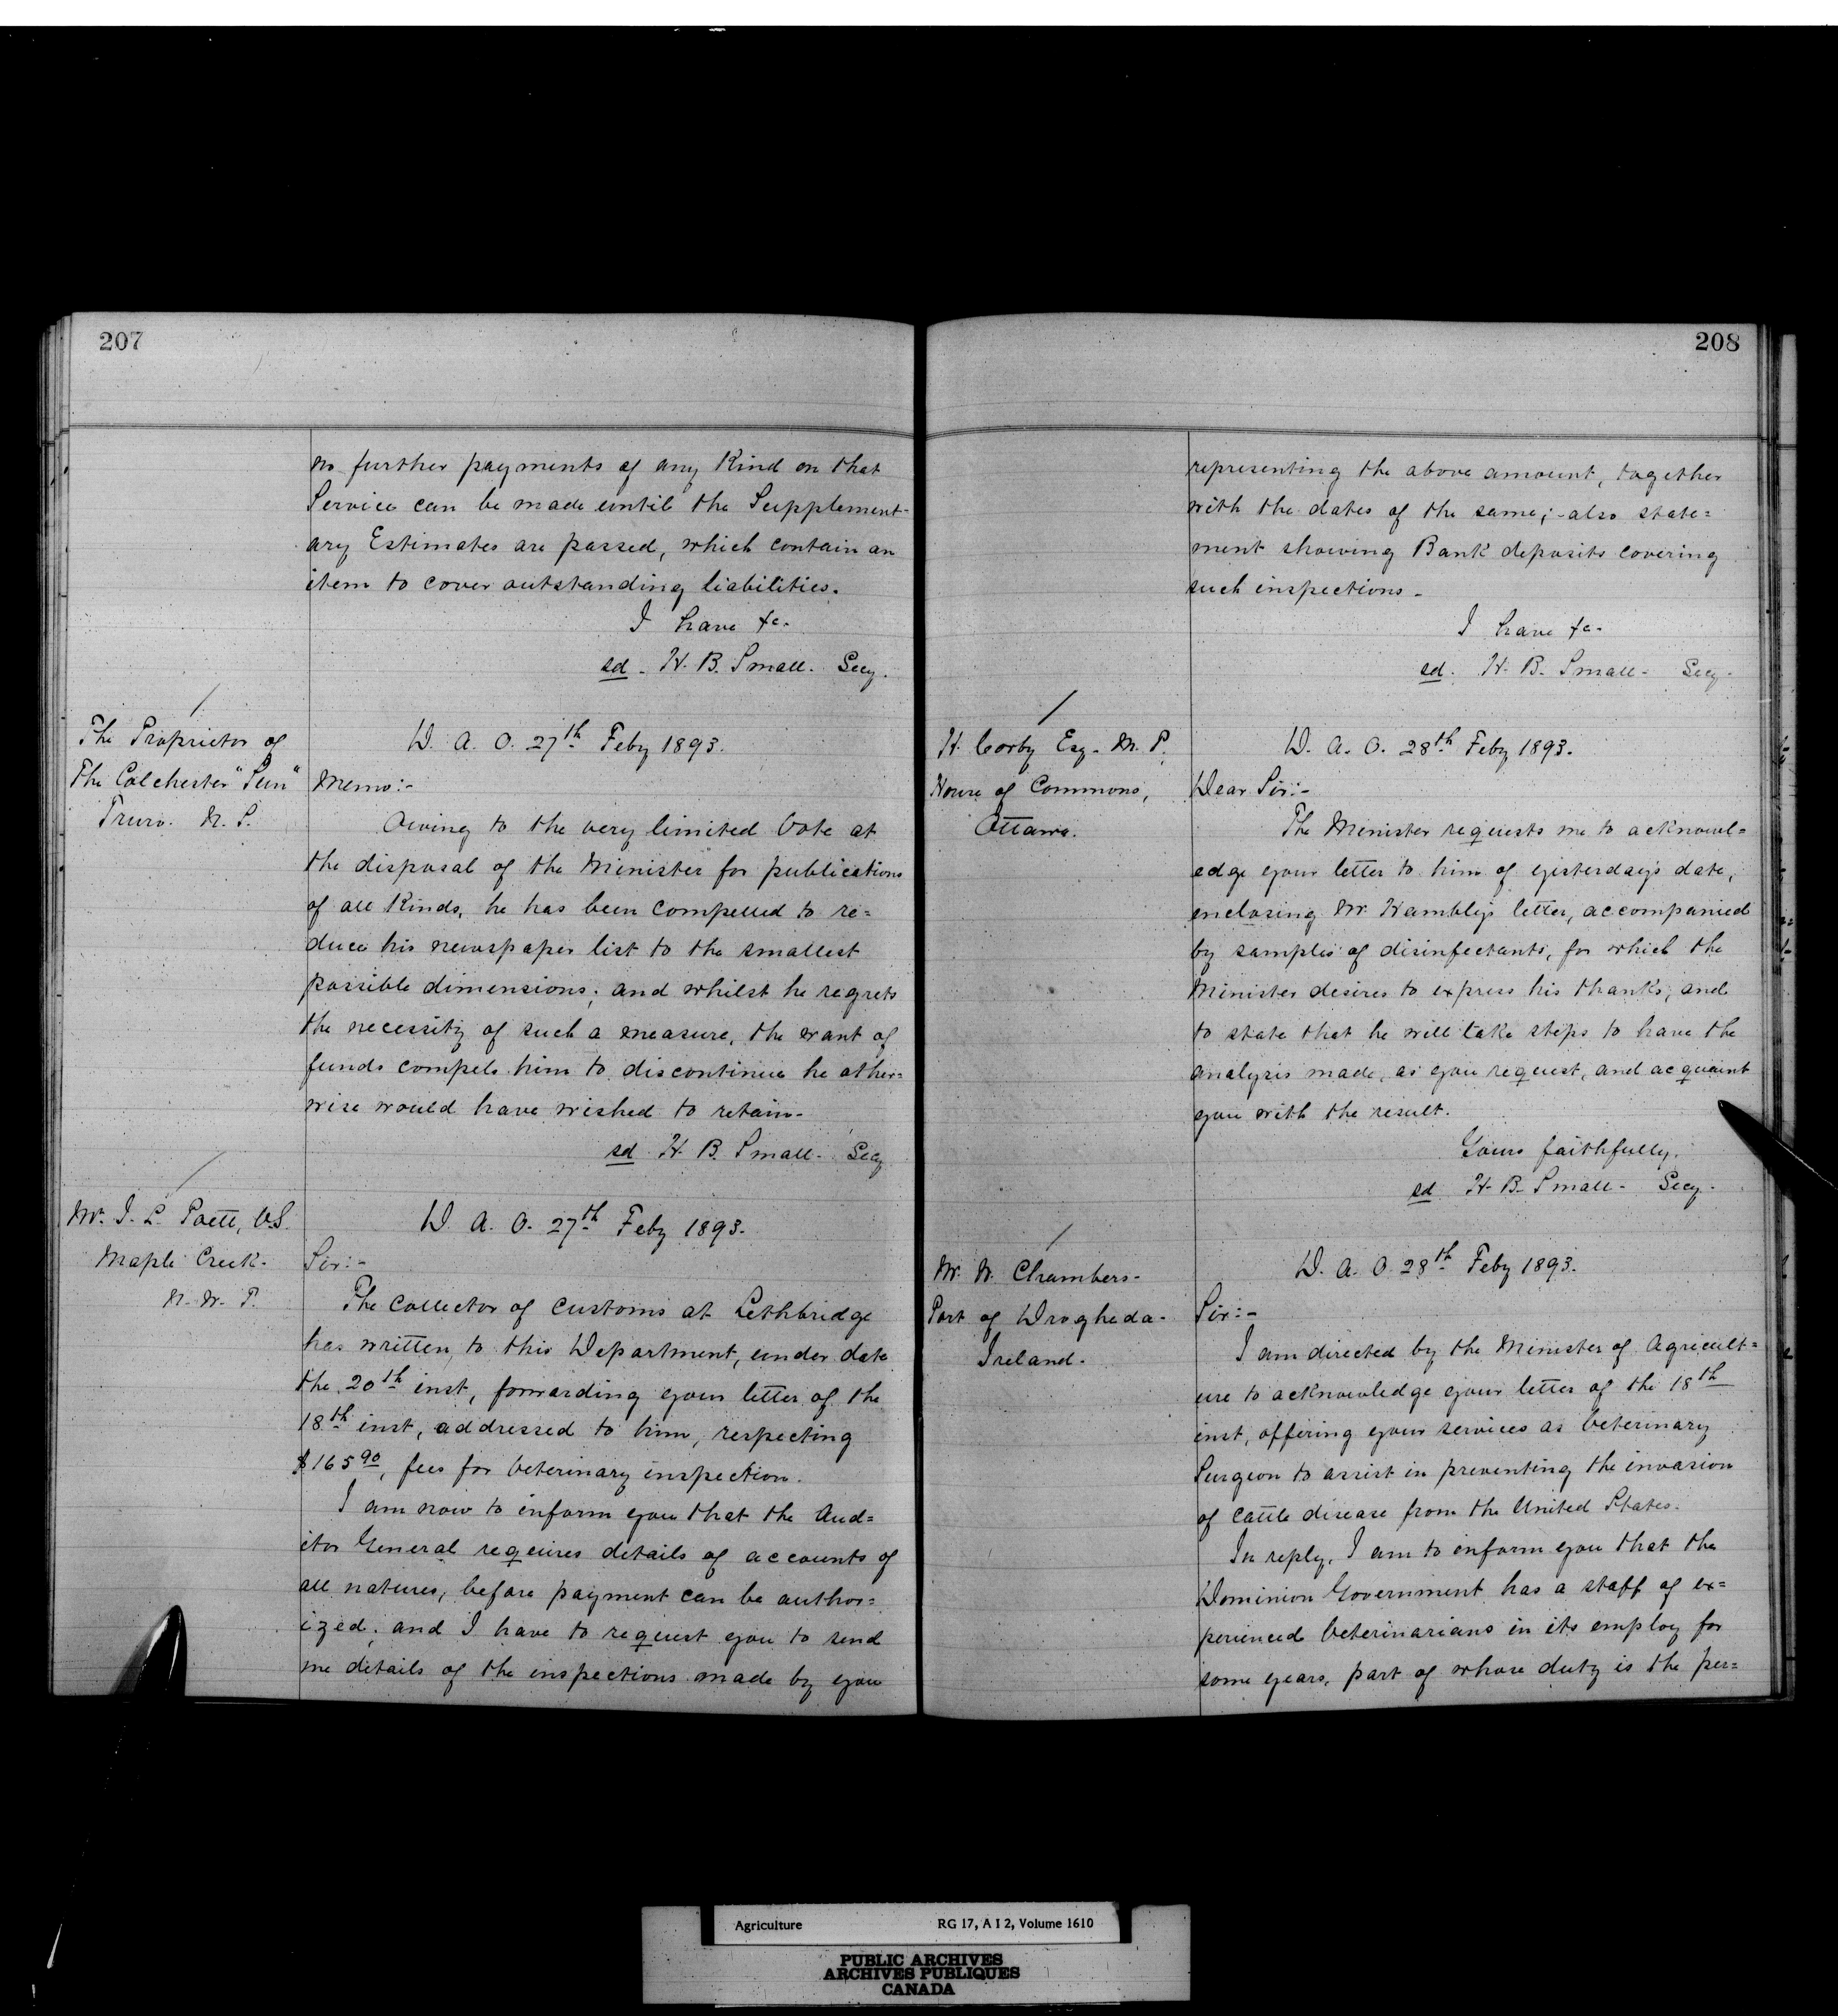 207
no further payments of any Kind on that
Service can be made until the Supplement-
ary Estimates are passed, which contain an
item to cover outstanding liabilities.
I have &c.
sd. H. B. Small. Secy.
The Proprietor of
The Colchester "Sun"
Truro. N. S.
D. A. O. 27th Feby 1893.
Memo:-
Owing to the very limited Vote at
the disposal of the Minister for publications
of all Kinds, he has been compelled to re=
duce his newspaper list to the smallest
possible dimensions; and whilst he regrets
the necessity of such a measure, the want of
funds compels him to discontinue he other=
wise would have wished to retain.
sd. H. B. Small. Secy
Mr. J. L. Poett, V.S.
Maple Creek.
N. W. T.
D. A. O. 27th Feby 1893.
Sir:-
The Collector of Customs at Lethbridge
has written to this Department, under date
the 20th inst, forwarding your letter of the
18th inst, addressed to him, respecting
$165.90, fees for Veterinary inspection.
I am now to inform you that the Aud=
itor General requires details of accounts of
all natures, before payment can be author=
ized; and I have to request you to send
me details of the inspections made by you
208
representing the above amount, together
with the dates of the same; - also state=
ment showing Bank deposits covering
such inspections -
I have &c.
sd. H. B. Small - Secy.
H. Corby Esq. M. P.
House of Commons,
Ottawa.
D. A. O. 28th Feby 1893.
Dear Sir:-
The Minister requests me to acknowl=
edge your letter to him of yisterday's date,
enclosing Mr. Hambly's letter, accompanied
by samples of disinfectants, for which the
Minister desires to express his thanks, and
to state that he will take steps to have the
analysis made, as you request, and acquaint
you with the result.
Yours faithfully,
sd. H. B. Small - Secy.
Mr. W. Chambers -
Port of Drogheda -
Ireland.
D. A. O. 28th Feby 1893.
Sir:-
I am directed by the Minister of Agricult=
ure to acknowledge your letter of the 18th
inst, offering your services as Veterinary
Surgeon to assist in preventing the invasion
of cattle disease from the United States.
In reply, I am to inform you that the
Dominion Government has a staff of ex=
perienced Veterinarians in its employ for
some years, part of whose duty is the per=
Agriculture RG 17, A I 2, Volume 1610
PUBLIC ARCHIVES
ARCHIVES PUBLIQUES
CANADA